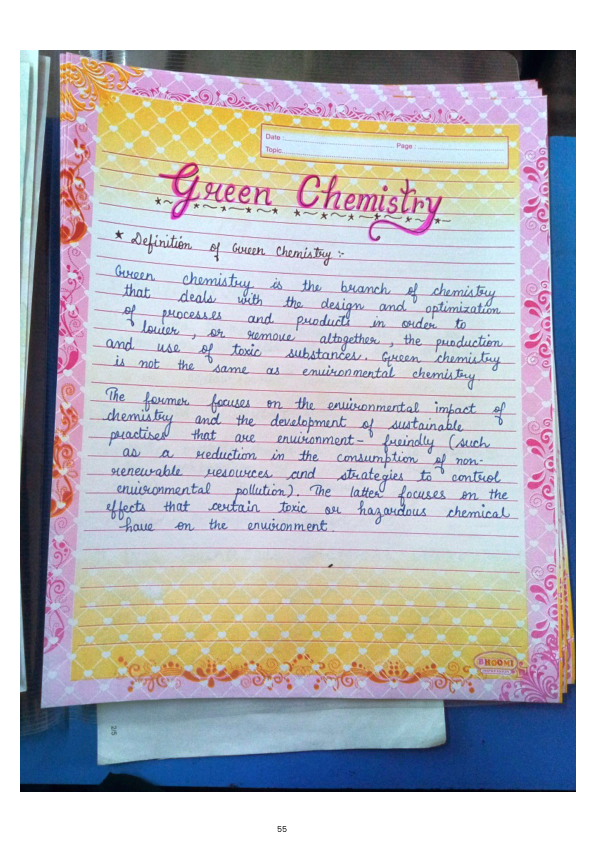 Date :
Page :
Topic:
Green Chemistry
* Definition of Green Chemistry :-
Green chemistry is the branch of chemistry
that deals with the design and optimization
of processes and products in order to
lower, or remove altogether, the production
and use of toxic substances. Green chemistry
is not the same as environmental chemistry
The former focuses on the environmental impact of
chemistry and the development of sustainable
practises that are environment- freindly (such
as a reduction in the consumption of non-
renewable resources and strategies to control
environmental pollution). The latter focuses on the
effects that certain toxic or hazardous chemical
have on the environment
BHOOMI
2/5
55